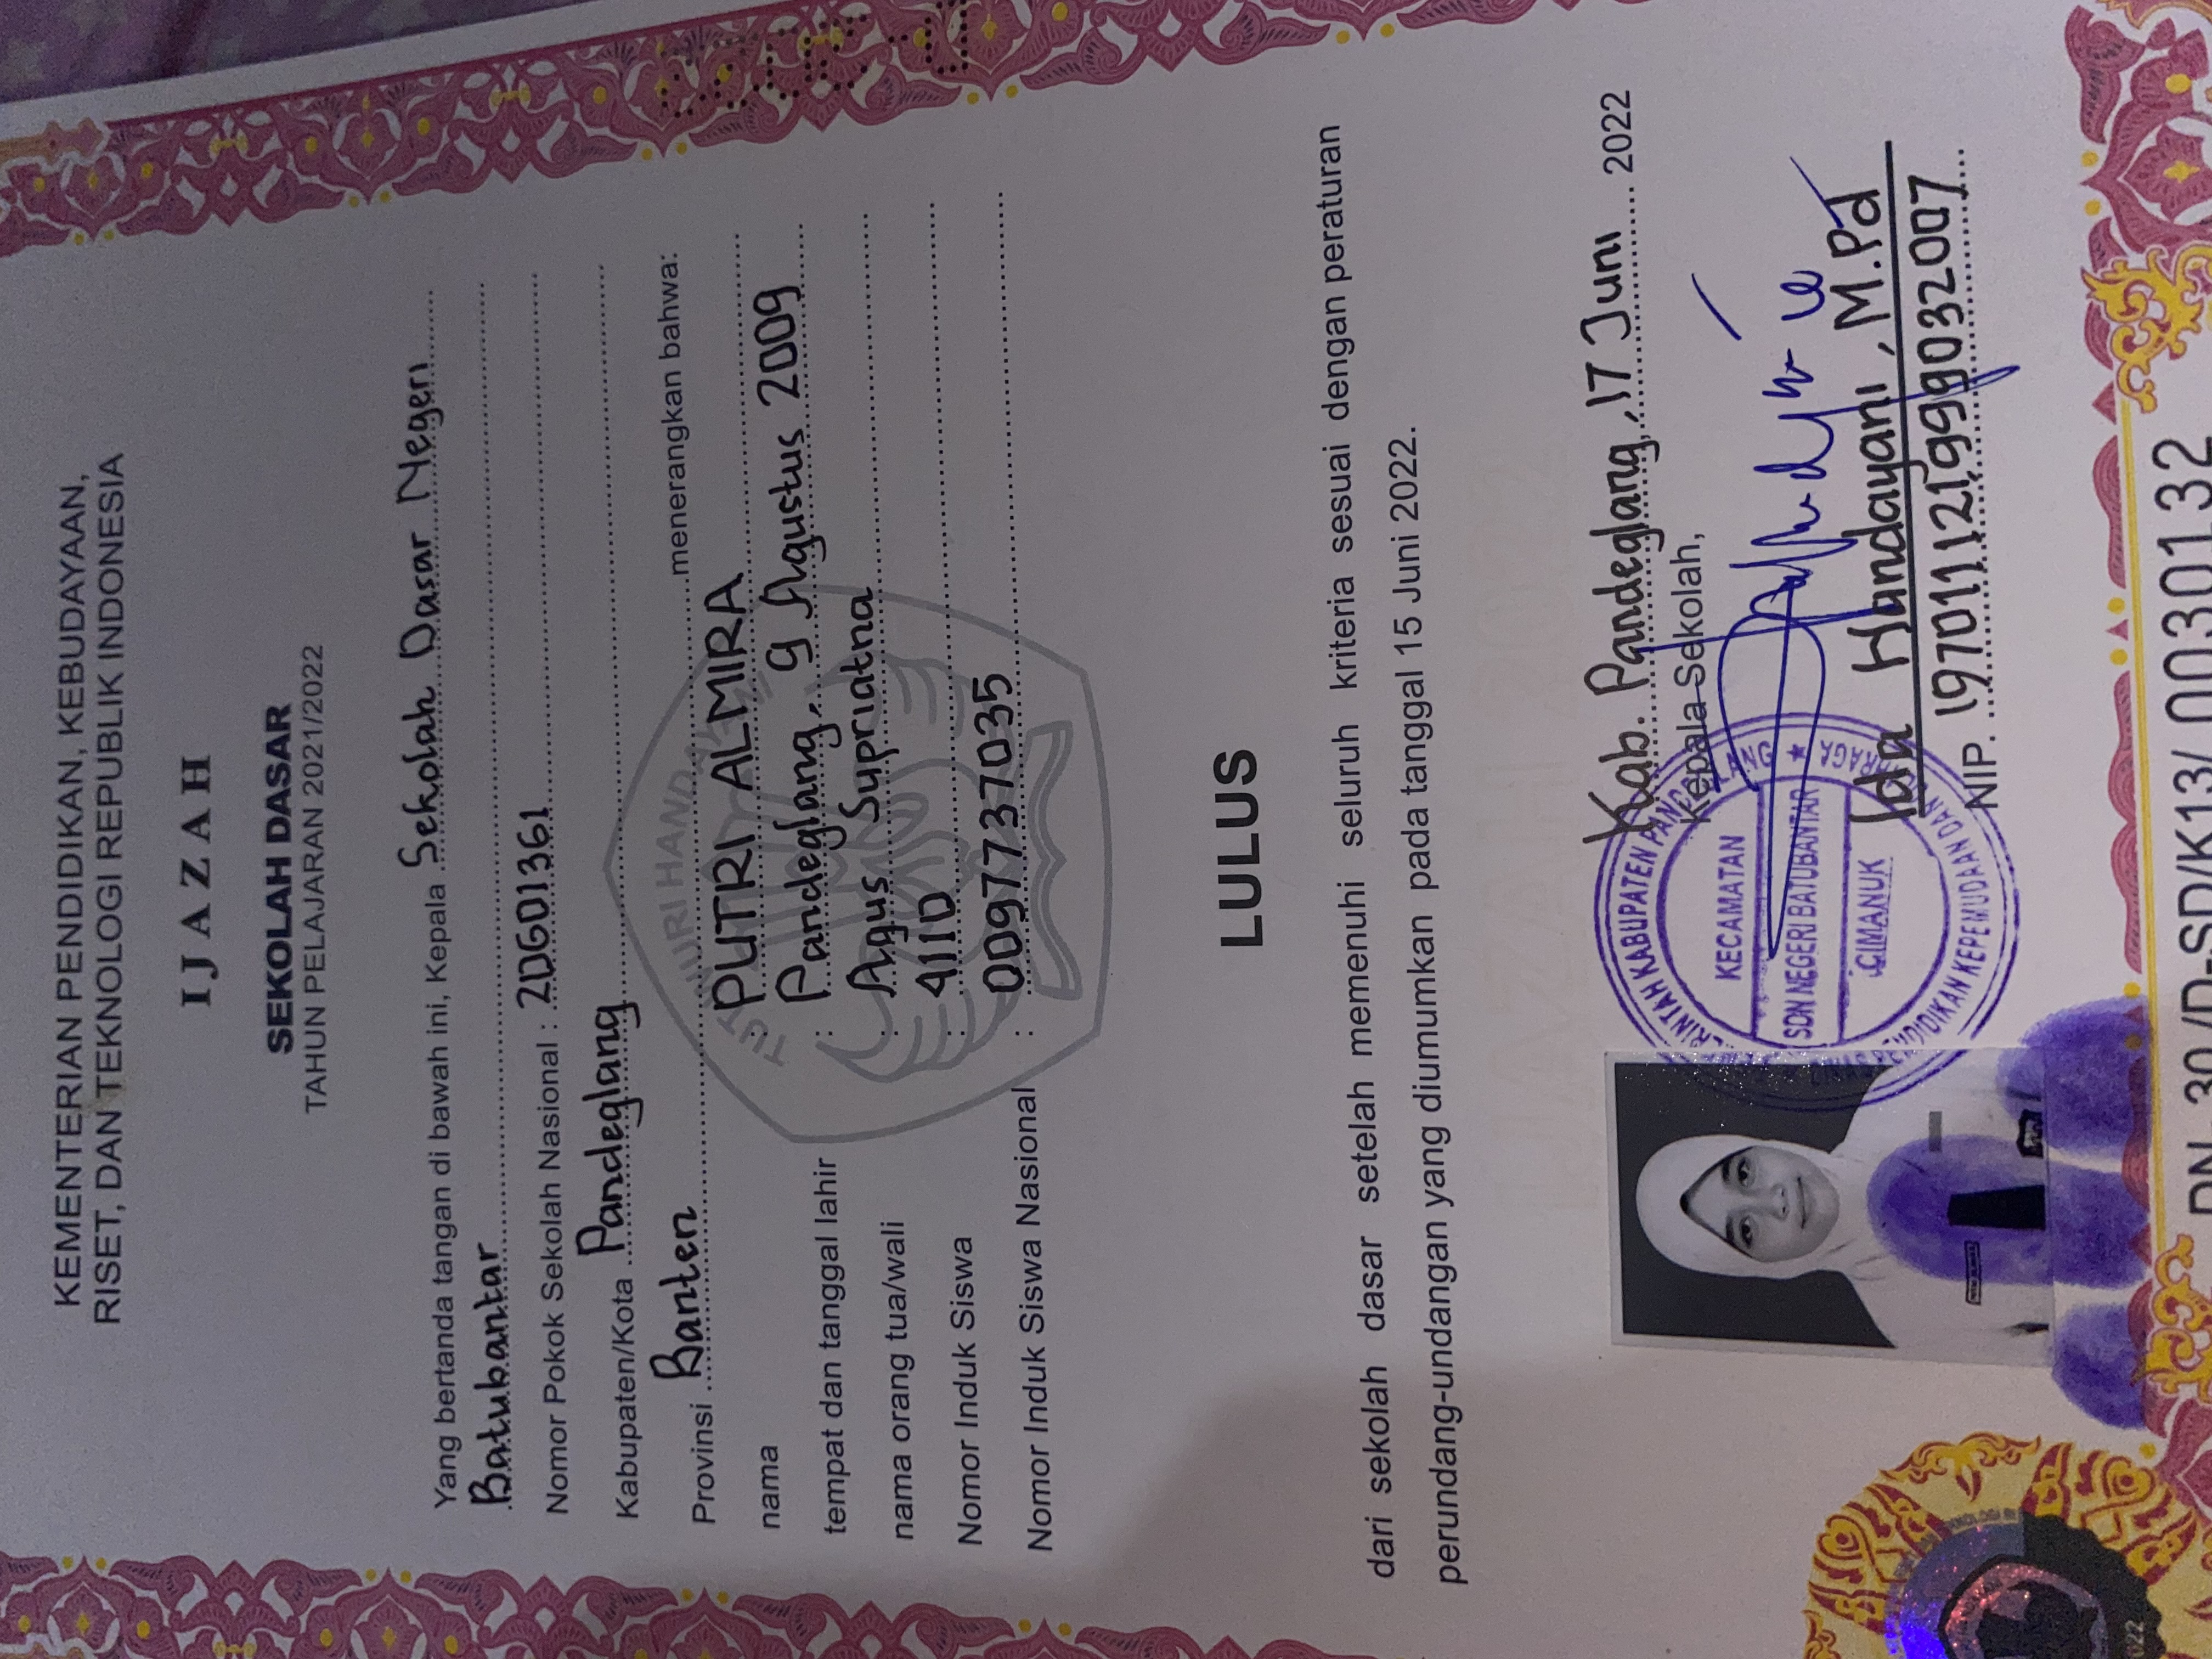 KEMENTERIAN PENDIDIKAN, KEBUDAYAAN,
RISET, DAN TEKNOLOGI REPUBLIK INDONESIA
IJAZAH
SEKOLAH DASAR
TAHUN PELAJARAN 2021/2022
Yang bertanda tangan di bawah ini, Kepala Sekolah Dasar Negeri
Batubantar
Nomor Pokok Sekolah Nasional : 20601361
Kabupaten/Kota Pandeglang
Provinsi Banten menerangkan bahwa:
TUT WURI HANDAYANI
nama : PUTRI ALMIRA
tempat dan tanggal lahir : Pandeglang, 9 Agustus 2009
nama orang tua/wali : Agus Supriatna
Nomor Induk Siswa : 4110
Nomor Induk Siswa Nasional : 0097737035
LULUS
dari sekolah dasar setelah memenuhi seluruh kriteria sesuai dengan peraturan
perundang-undangan yang diumumkan pada tanggal 15 Juni 2022.
Kab. Pandeglang, 17 Juni 2022
Kepala Sekolah,
ERINTAH KABUPATEN PANDEGLANG
KECAMATAN
SDN NEGERI BATUBANTAR
CIMANUK
DIDIKAN KEPEMUDAAN DAN
Ida Handayani, M.Pd
NIP. 197011121999032007
022
DN-30/D-SD/K13/ 0030132